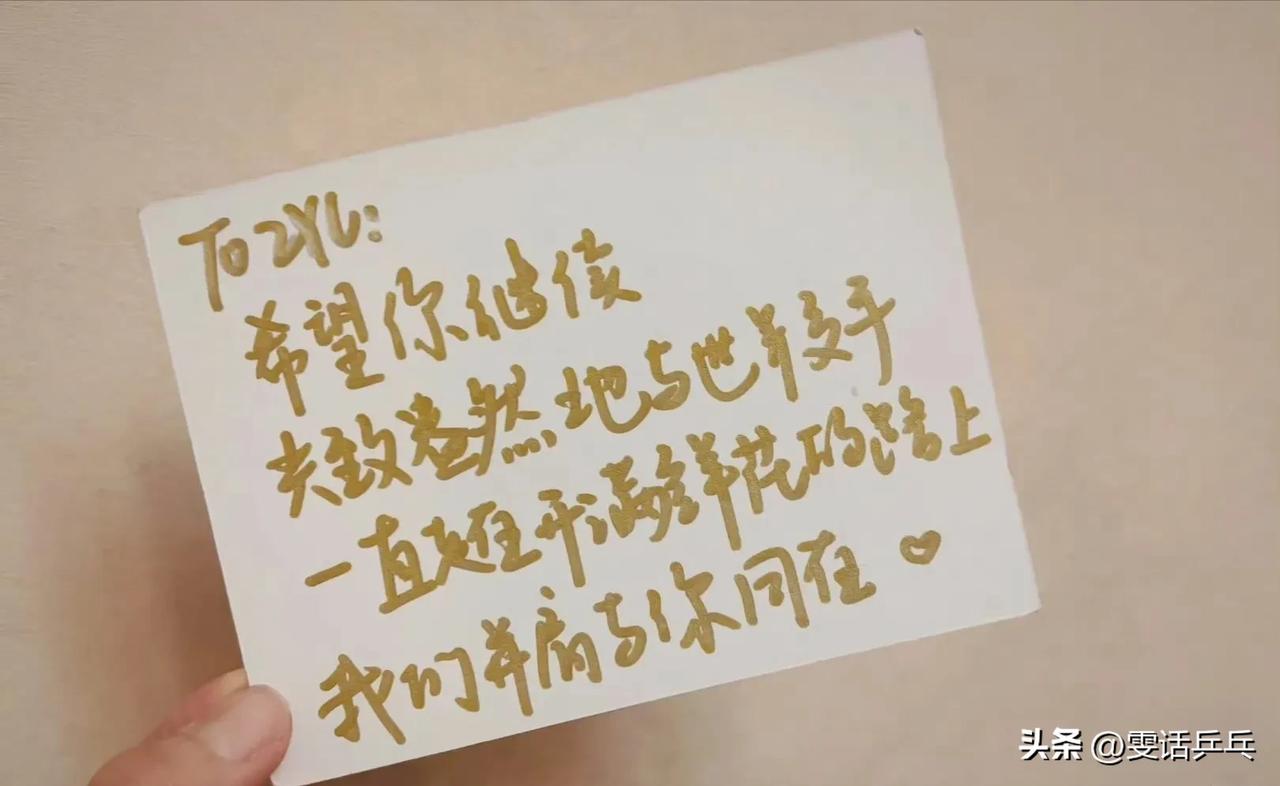 To ZYL:
希望你继续
兴致盎然地与世界交手
一直走在开满鲜花的路上
我们并肩与你同在♡
头条 @雯话乒乓